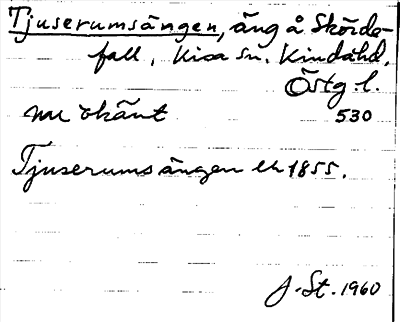 Tjuserumsängen, äng å Skörde-
fall, Kisa sn. Kinda hd.
Östg. l.
nu okänt 530
Tjuserums ängen lh 1855.
J. St. 1960